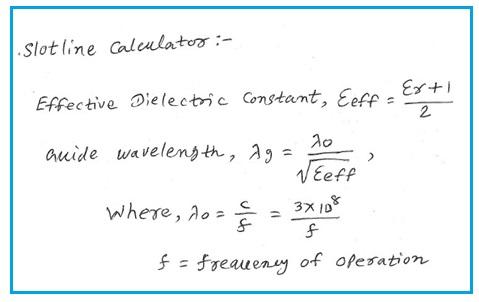 .Slotline Calculator :-
Effective Dielectric Constant, Ɛeff = Ɛr+1/2
Guide wavelength, λg = λo/√Ɛeff ,
Where, λo = c/f = 3×10⁸/f
f = frequency of operation